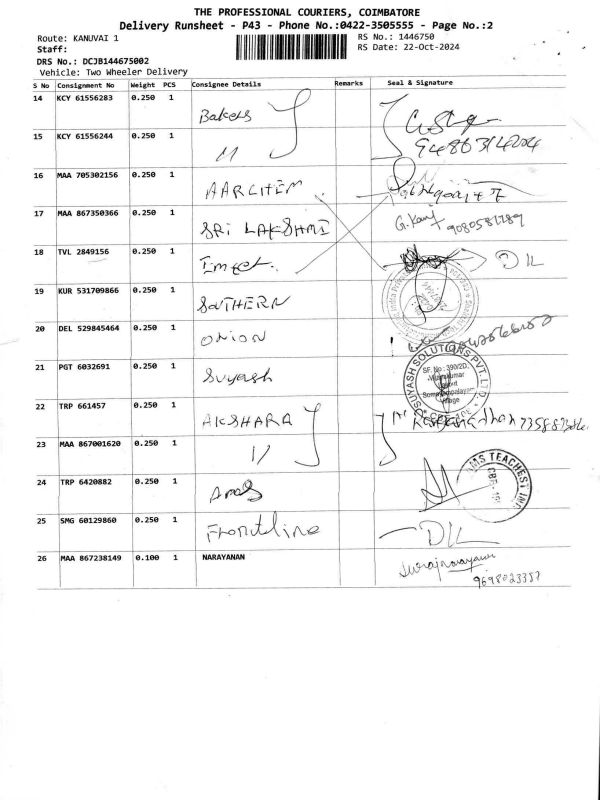 THE PROFESSIONAL COURIERS, COIMBATORE
Delivery Runsheet - P43 - Phone No.:0422-3505555 - Page No.:2
Route: KANUVAI 1 RS No.: 1446750
Staff: RS Date: 22-Oct-2024
DRS No.: DCJB144675002
Vehicle: Two Wheeler Delivery
S No Consignment No Weight PCS Consignee Details Remarks Seal & Signature
14 KCY 61556283 0.250 1 Bakers
15 KCY 61556244 0.250 1 11
16 MAA 705302156 0.250 1 AARCHEM
17 MAA 867350366 0.250 1 SRI LAKSHMI 9080581789
18 TVL 2849156 0.250 1 D/L
19 KUR 531709866 0.250 1 SOUTHERN
20 DEL 529845464 0.250 1 ONION
21 PGT 6032691 0.250 1 Suyash
SUYASH SOLUTIONS PVT. LTD
SF. No: 390/2D,
Village
22 TRP 661457 0.250 1 AKSHARA
23 MAA 867001620 0.250 1 11
24 TRP 6420882 0.250 1 Ames
AMS TEACHEST IND
25 SMG 60129860 0.250 1 Frontline D/L
26 MAA 867238149 0.100 1 NARAYANAN
9698023357